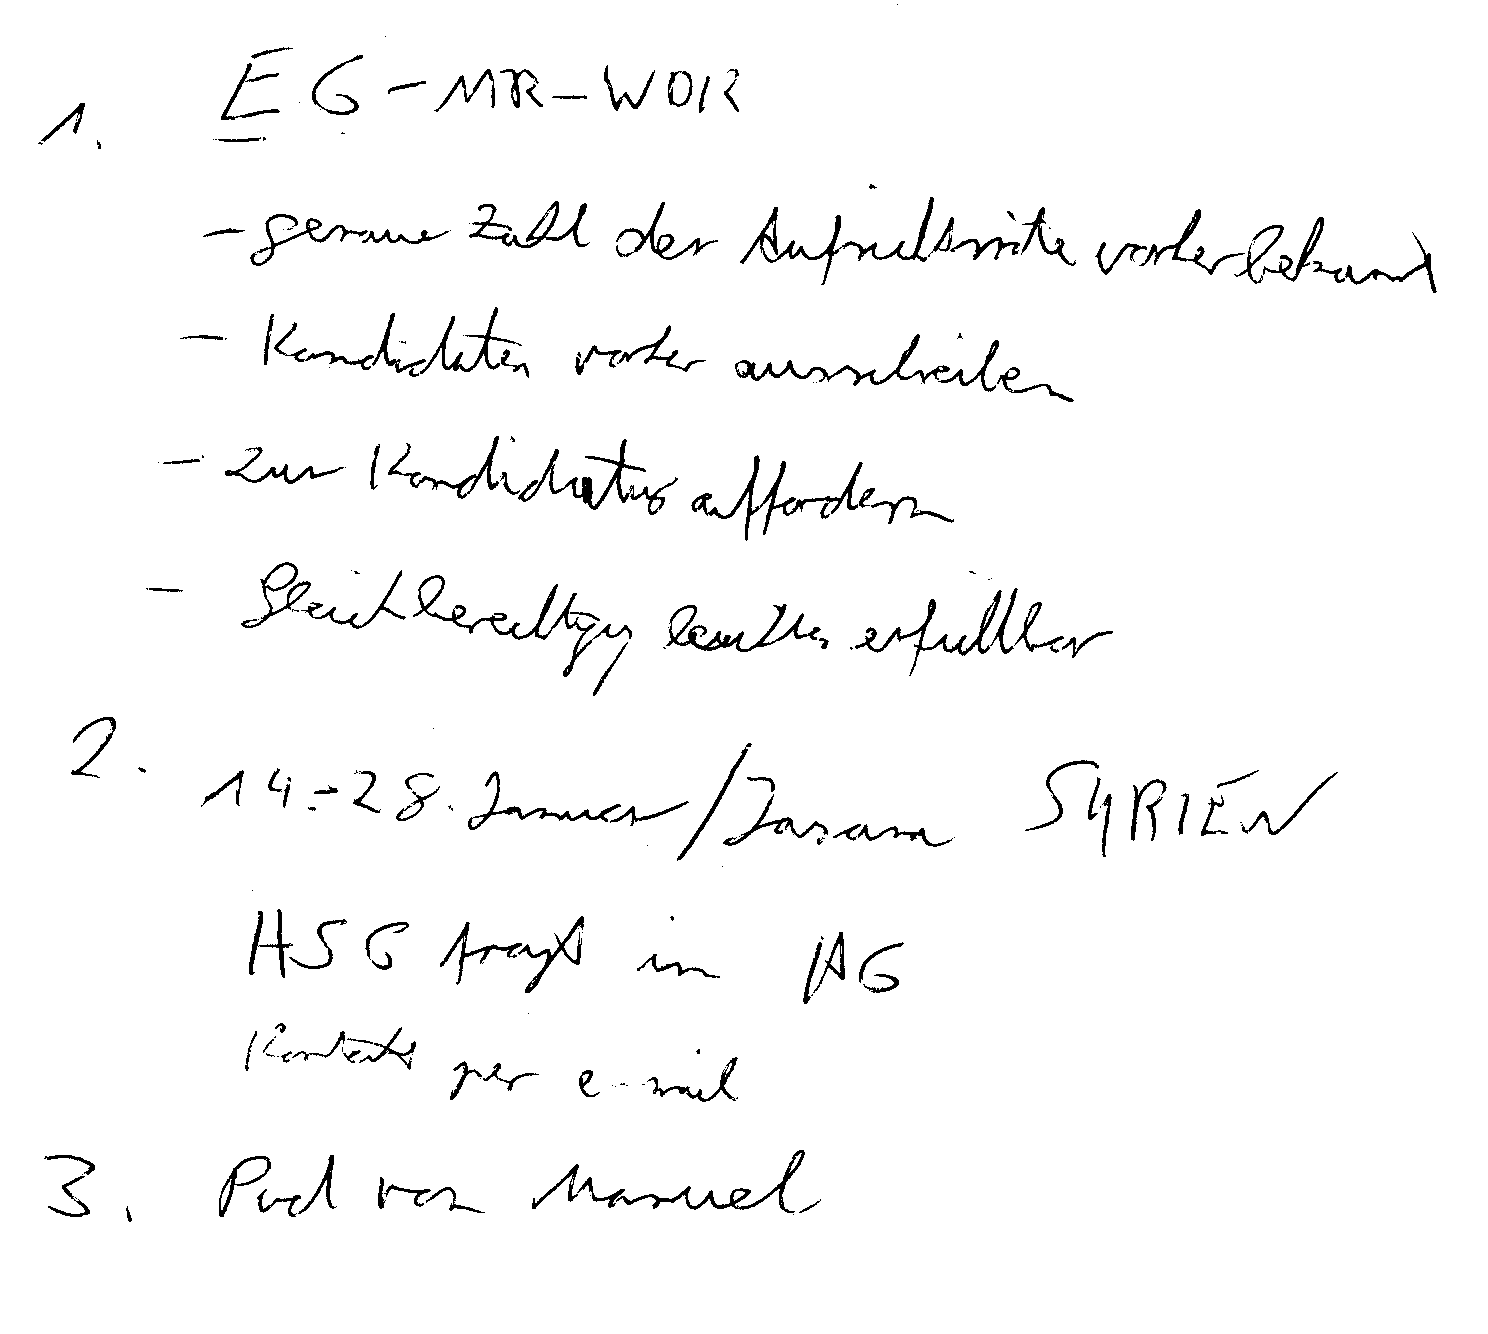 1. EG-MR-WOR
- genaue Zahl der Aufsichtsräte vorher bekannt
- Kandidaten vorher ausschreiben
- zur Kandidatur auffordern
- Gleichberechtigung leichter erfüllbar
2. 14.-28. Januar / SYRIEN
HSG fragt in AG
Kontakt per e-mail
3. von Manuel